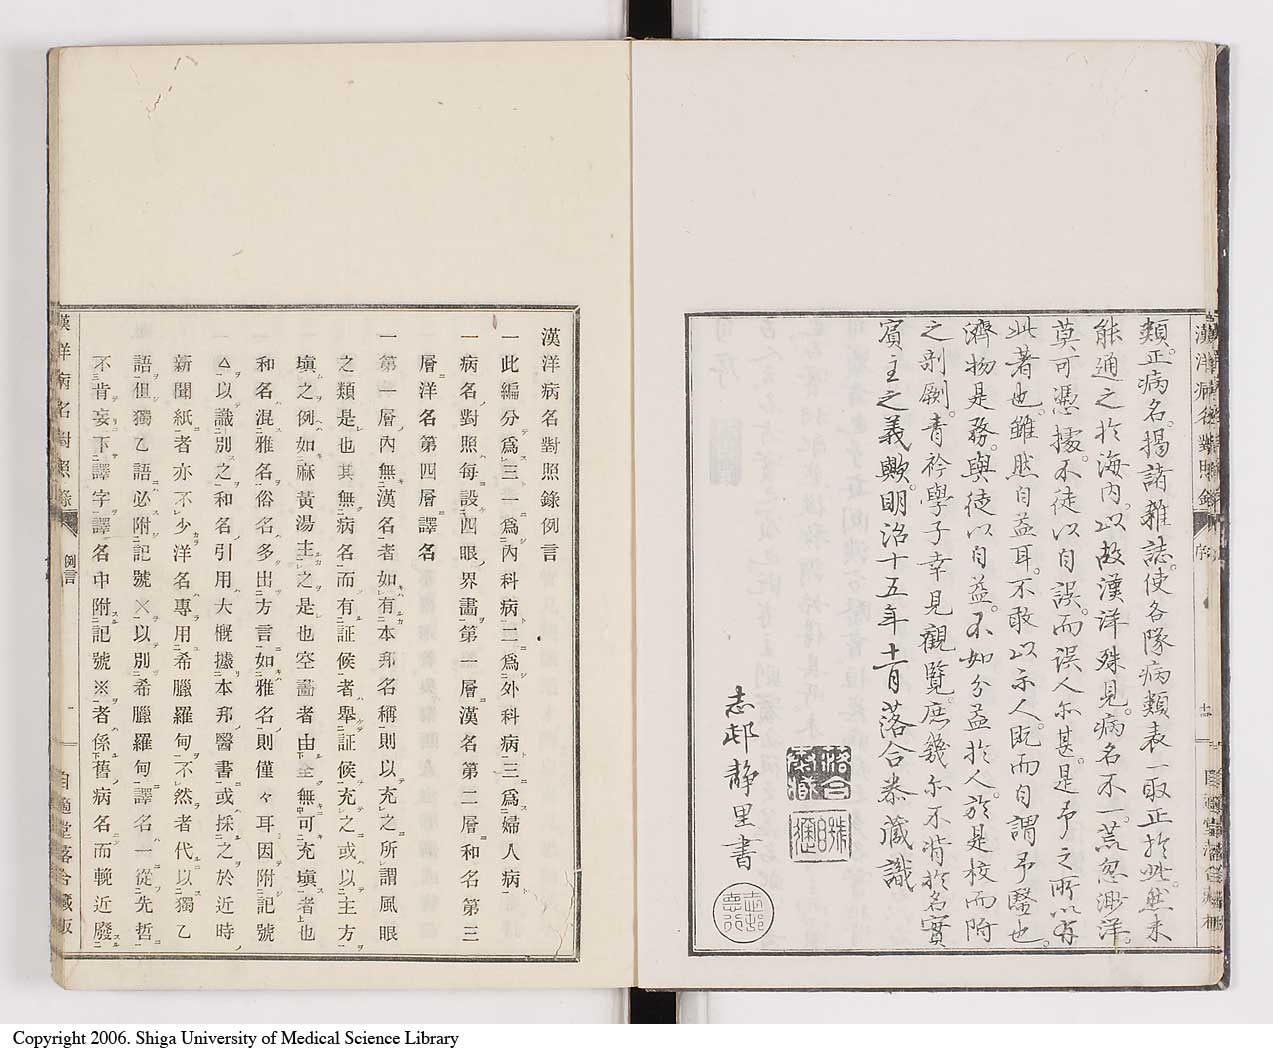 漢洋病名對照錄
序
類正病名揭諸雜誌使各隊病類表一取正於此然未
能通之於海内以故漢洋殊見病名不一荒忽渺洋
莫可憑據不徒以自誤而誤人尒甚是予之所以有
此著也雖然自益耳不敢以示人既而自謂予醫也
濟物是務與徒以自益不如分益於人於是校而附
之剞劂青衿學子幸見觀覽庶幾尒不背於名實
賓主之義歟明治十五年十一月落合泰藏識
志邨静里書
漢洋病名對照錄例言
一此編分爲三一爲內科病二爲外科病三爲婦人病
一病名對照每設四眼界畫第一層漢名第二層和名第三
層洋名第四層譯名
一第一層內無漢名者如有本邦名稱則以充之所謂風眼
之類是也其無病名而有証候者舉証候充之或以主方
塡之例如麻黃湯主之是也空畵者由全無可充塡者也
和名混雅名俗名多出方言如雅名則僅々耳因附記號
△以識別之和名引用大概據本邦醫書或採之於近時
新聞紙者亦不少洋名專用希臘羅甸不然者代以獨乙
語但獨乙語必附記號×以別希臘羅甸譯名一從先哲
不肯妄下譯字譯名中附記號※者係舊病名而輓近廢
漢洋病名對照錄
例言
一
自適堂落合藏版
Copyright 2006. Shiga University of Medical Science Library